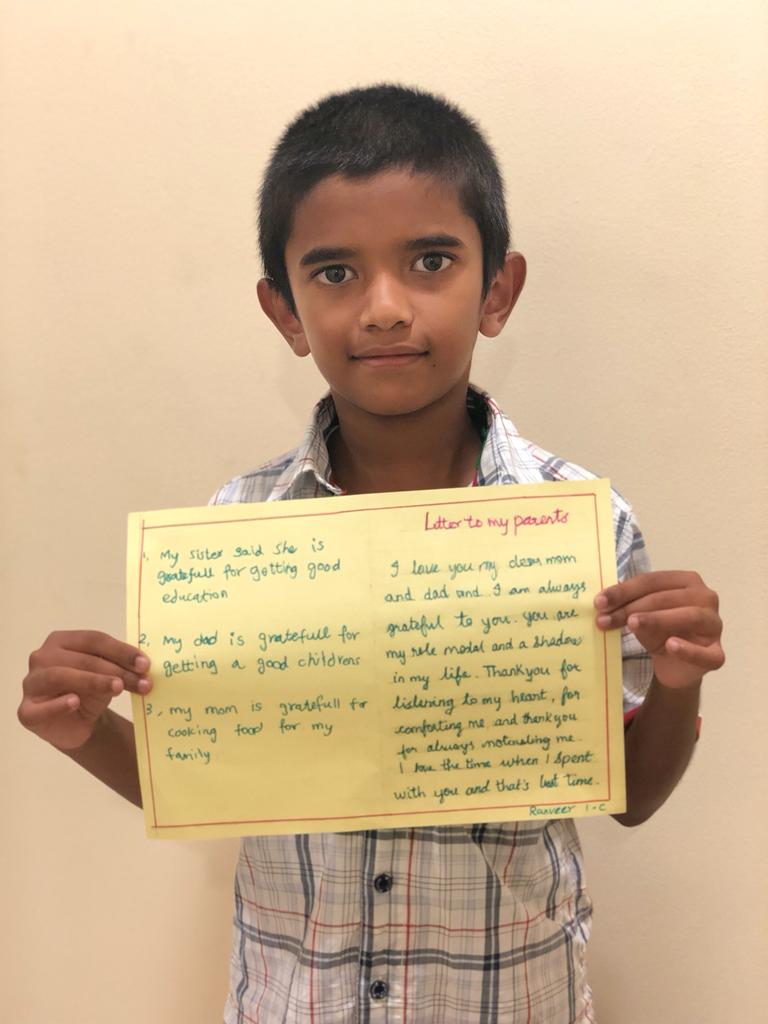 1. My sister said she is
gratefull for getting good
education
2. My dad is gratefull for
getting a good childrens
3, my mom is gratefull for
cooking food for my
family
Letter to my parents
I love you my dear mom
and dad and I am always
grateful to you. you are
my role model and a shadow
in my life. Thankyou for
listening to my heart, for
comforting me and thankyou
for always motivating me.
I love the time when I spent
with you and that's best time.
Ranveer 1-C